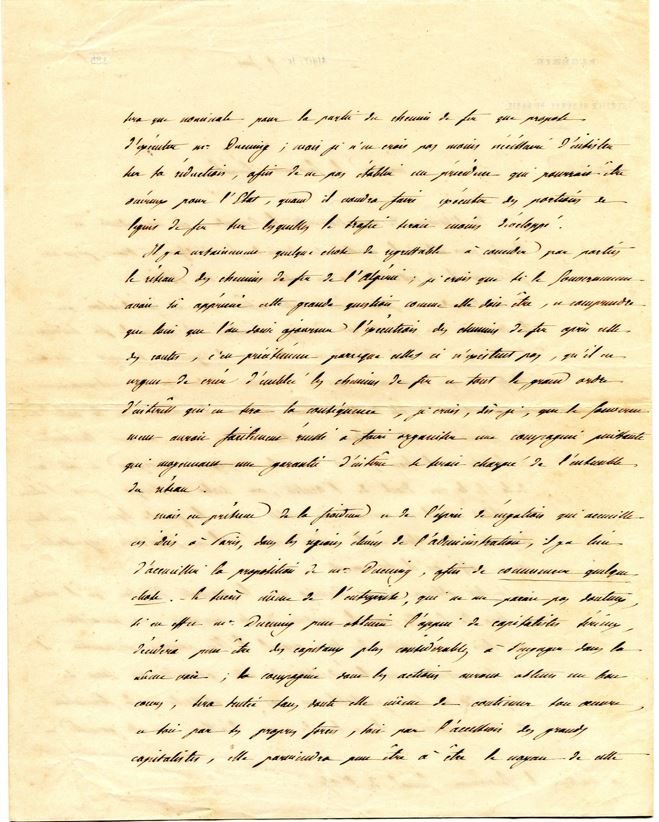 sera que nominale pour la partie du chemin de fer que propose
d'exécuter Mr Ducuing ; mais je n'en crois pas moins nécessaire d'insister
sur sa réduction, afin de ne pas établir un précédent qui pourrait être
onéreux pour l'Etat, quand il voudra faire exécuter des portions de
lignes de fer sur lesquelles le trafic serait moins développé.
Il y a certainement quelque chose de regrettable à concéder par parties
le réseau des chemins de fer de l'Algérie ; je crois que si le Gouvernement
avait su apprécier cette grande question comme elle doit être, et comprendre
que loin que l'on doive ajourner l'exécution des chemins de fer après celle
des routes, c'est précisément parceque celles ci n'existent pas, qu'il est
urgent de créer d'emblée les chemins de fer et tout le grand ordre
d'intérêts qui en sera la conséquence, je crois, dis-je, que le Gouverne
ment aurait facilement réussi à faire organiser une compagnie puissante
qui moyennant une garantie d'intérêt se serait chargée de l'ensemble
du réseau.
Mais en présence de la froideur et de l'esprit de négation qui accueille
ces idées à Paris, dans les régions élevées de l'administration, il y a lieu
d'accueillir la proposition de Mr Ducuing, afin de commencer quelque
chose. Le succès même de l'entreprise, qui ne me paraît pas douteux,
si en effet Mr Ducuing peut obtenir l'appui de capitalistes sérieux,
décidera peut être des capitaux plus considérables à s'engager dans la
même voie ; la compagnie dont les actions auront obtenu un bon
cours, sera tentée sans doute elle même de continuer son œuvre,
et soit par ses propres forces, soit par l'accession des grands
capitalistes, elle parviendra peut être à être le noyau de celle